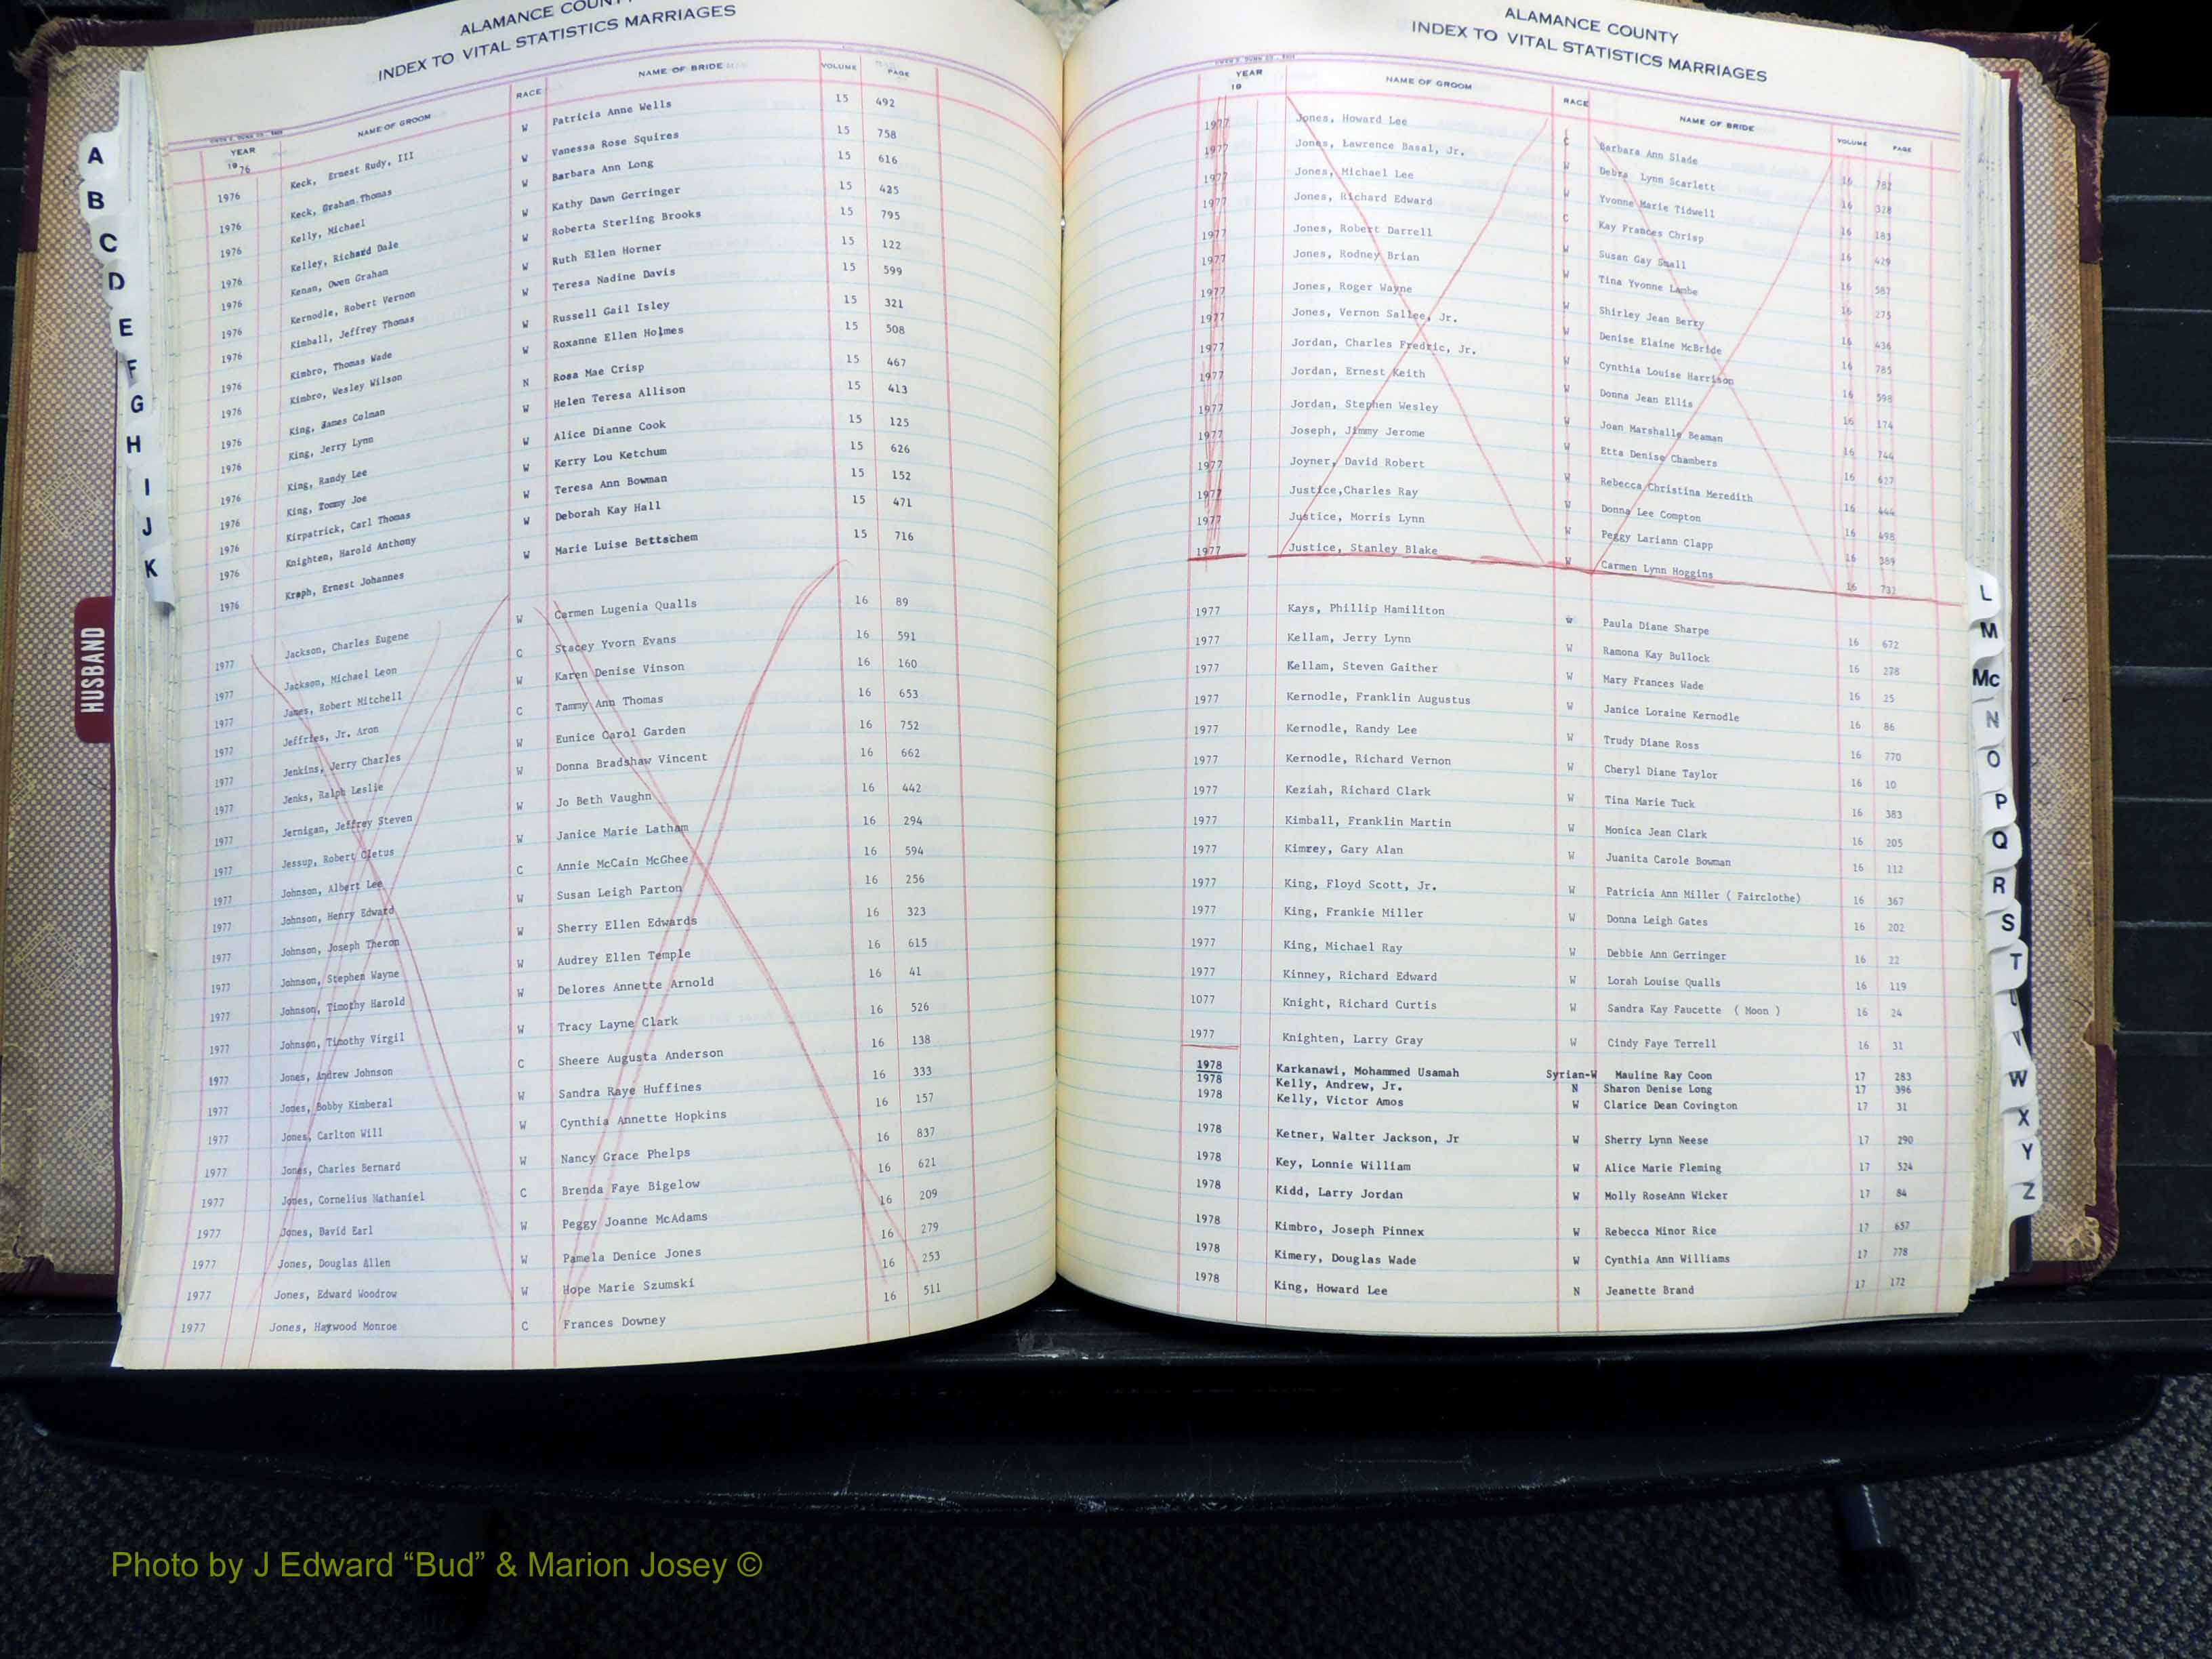 ALAMANCE COUNTY
INDEX TO VITAL STATISTICS MARRIAGES
YEAR 19 NAME OF GROOM RACE NAME OF BRIDE VOLUME PAGE
76
1976 Keck, Ernest Rudy, III W Patricia Anne Wells 15 492
1976 Keck, Graham Thomas W Vanessa Rose Squires 15 758
1976 Kelly, Michael W Barbara Ann Long 15 616
1976 Kelley, Richard Dale W Kathy Dawn Gerringer 15 425
1976 Kenan, Owen Graham W Roberta Sterling Brooks 15 795
1976 Kernodle, Robert Vernon W Ruth Ellen Horner 15 122
1976 Kimball, Jeffrey Thomas W Teresa Nadine Davis 15 599
1976 Kimbro, Thomas Wade W Russell Gail Isley 15 321
1976 Kimbro, Wesley Wilson W Roxanne Ellen Holmes 15 508
1976 King, James Colman N Rosa Mae Crisp 15 467
1976 King, Jerry Lynn W Helen Teresa Allison 15 413
1976 King, Randy Lee W Alice Dianne Cook 15 125
1976 King, Tommy Joe W Kerry Lou Ketchum 15 626
1976 Kirpatrick, Carl Thomas W Teresa Ann Bowman 15 152
1976 Knighten, Harold Anthony W Deborah Kay Hall 15 471
1976 Kraph, Ernest Johannes W Marie Luise Bettschem 15 716
1977 Jackson, Charles Eugene W Carmen Lugenia Qualls 16 89
1977 Jackson, Michael Leon C Stacey Yvorn Evans 16 591
1977 James, Robert Mitchell W Karen Denise Vinson 16 160
1977 Jeffries, Jr. Aron C Tammy Ann Thomas 16 653
1977 Jenkins, Jerry Charles W Eunice Carol Garden 16 752
1977 Jenks, Ralph Leslie W Donna Bradshaw Vincent 16 662
1977 Jernigan, Jeffrey Steven W Jo Beth Vaughn 16 442
1977 Jessup, Robert Cletus W Janice Marie Latham 16 294
1977 Johnson, Albert Lee C Annie McCain McGhee 16 594
1977 Johnson, Henry Edward W Susan Leigh Parton 16 256
1977 Johnson, Joseph Theron W Sherry Ellen Edwards 16 323
1977 Johnson, Stephen Wayne W Audrey Ellen Temple 16 615
1977 Johnson, Timothy Harold W Delores Annette Arnold 16 41
1977 Johnson, Timothy Virgil W Tracy Layne Clark 16 526
1977 Jones, Andrew Johnson C Sheere Augusta Anderson 16 138
1977 Jones, Bobby Kimberal W Sandra Raye Huffines 16 333
1977 Jones, Carlton Will W Cynthia Annette Hopkins 16 157
1977 Jones, Charles Bernard W Nancy Grace Phelps 16 837
1977 Jones, Cornelius Nathaniel C Brenda Faye Bigelow 16 621
1977 Jones, David Earl W Peggy Joanne McAdams 16 209
1977 Jones, Douglas Allen W Pamela Denice Jones 16 279
1977 Jones, Edward Woodrow W Hope Marie Szumski 16 253
1977 Jones, Haywood Monroe C Frances Downey 16 511
A
B
C
D
E
F
G
H
I
J
K
HUSBAND
ALAMANCE COUNTY
INDEX TO VITAL STATISTICS MARRIAGES
YEAR 19 NAME OF GROOM RACE NAME OF BRIDE VOLUME PAGE
1977 Jones, Howard Lee C Barbara Ann Slade 16 782
1977 Jones, Lawrence Basal, Jr. W Debra Lynn Scarlett 16 328
1977 Jones, Michael Lee W Yvonne Marie Tidwell 16 183
1977 Jones, Richard Edward C Kay Frances Chrisp 16 429
1977 Jones, Robert Darrell W Susan Gay Small 16 587
1977 Jones, Rodney Brian W Tina Yvonne Lambe 16 275
1977 Jones, Roger Wayne W Shirley Jean Berry 16 436
1977 Jones, Vernon Sallee, Jr. W Denise Elaine McBride 16 785
1977 Jordan, Charles Fredric, Jr. W Cynthia Louise Harrison 16 598
1977 Jordan, Ernest Keith W Donna Jean Ellis 16 174
1977 Jordan, Stephen Wesley W Joan Marshalle Beaman 16 744
1977 Joseph, Jimmy Jerome W Etta Denise Chambers 16 627
1977 Joyner, David Robert W Rebecca Christina Meredith 16 444
1977 Justice,Charles Ray W Donna Lee Compton 16 498
1977 Justice, Morris Lynn W Peggy Lariann Clapp 16 389
1977 Justice, Stanley Blake W Carmen Lynn Hoggins 16 732
1977 Kays, Phillip Hamiliton W Paula Diane Sharpe 16 672
1977 Kellam, Jerry Lynn W Ramona Kay Bullock 16 278
1977 Kellam, Steven Gaither W Mary Frances Wade 16 25
1977 Kernodle, Franklin Augustus W Janice Loraine Kernodle 16 86
1977 Kernodle, Randy Lee W Trudy Diane Ross 16 770
1977 Kernodle, Richard Vernon W Cheryl Diane Taylor 16 10
1977 Keziah, Richard Clark W Tina Marie Tuck 16 383
1977 Kimball, Franklin Martin W Monica Jean Clark 16 205
1977 Kimrey, Gary Alan W Juanita Carole Bowman 16 112
1977 King, Floyd Scott, Jr. W Patricia Ann Miller ( Fairclothe) 16 367
1977 King, Frankie Miller W Donna Leigh Gates 16 202
1977 King, Michael Ray W Debbie Ann Gerringer 16 22
1977 Kinney, Richard Edward W Lorah Louise Qualls 16 119
1077 Knight, Richard Curtis W Sandra Kay Faucette ( Moon ) 16 24
1977 Knighten, Larry Gray W Cindy Faye Terrell 16 31
1978 Karkanawi, Mohammed Usamah Syrian-W Mauline Ray Coon 17 283
1978 Kelly, Andrew, Jr. N Sharon Denise Long 17 396
1978 Kelly, Victor Amos W Clarice Dean Covington 17 31
1978 Ketner, Walter Jackson, Jr W Sherry Lynn Neese 17 290
1978 Key, Lonnie William W Alice Marie Fleming 17 524
1978 Kidd, Larry Jordan W Molly RoseAnn Wicker 17 84
1978 Kimbro, Joseph Pinnex W Rebecca Minor Rice 17 657
1978 Kimery, Douglas Wade W Cynthia Ann Williams 17 778
1978 King, Howard Lee N Jeanette Brand 17 172
L
M
Mc
N
O
P
Q
R
S
T
U
V
W
X
Y
Z
Photo by J Edward “Bud” & Marion Josey ©